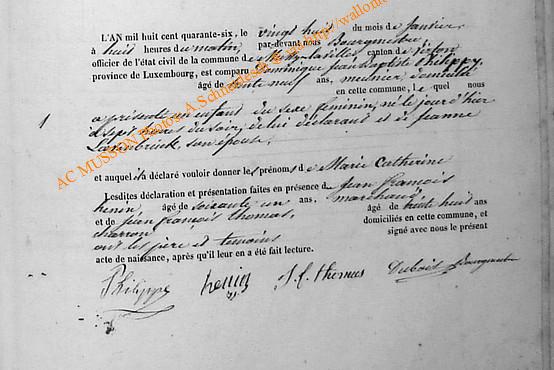 L'AN mil huit cent quarante-six, le vingt huit du mois de Janvier,
à huit heures de matin, par-devant nous Bourgmestre,
officier de l'état civil de la commune de Mussy-la-ville canton de Virton
province de Luxembourg, est comparu Dominique jean Baptiste Philippy,
âgé de trente neuf ans, meunier, domicilié
en cette commune, Lequel nous
1 a présenté un enfant du sexe féminin, né le jour d'hier
à sept heures du soir, de lui déclarant et de jeanne
son épouse,
et auquel il a déclaré vouloir donner les prénoms de Marie Catherine
Lesdites déclaration et présentation faites en présence de jean françois
henin, âgé de soixante un ans, marchand,
et de jean françois thomas, âgé de trente huit ans
charron domiciliés en cette commune, et
ont les père et temoins signé avec nous le présent
acte de naissance, après qu'il leur en a été fait lecture.
Philippy henin J. f. thomas Dubois Bourgmestre
AC MUSSON Photos A.Schneider